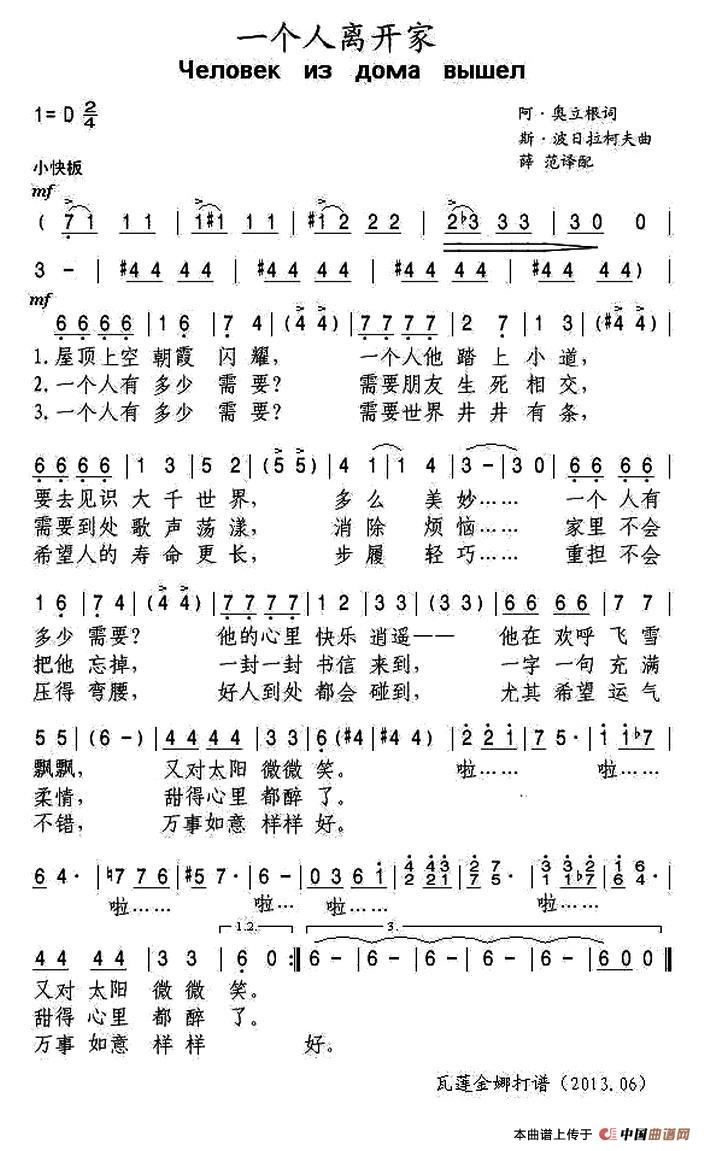 一个人离开家
Человек из дома вышел
1=D 2/4
阿·奥立根词
斯·波日拉柯夫曲
薛 范译配
小快板
mf
( 7 1 1 1 | 1 #1 1 1 | #1 2 2 2 | 2 b3 3 3 | 3 0 0 |
3 - | #4 4 4 4 | #4 4 4 4 | #4 4 4 4 | #4 4 4 4 )
mf
6 6 6 6 | 1 6 | 7 4 | (4 4) | 7 7 7 7 | 2 7 | 1 3 | (#4 4) |
1.屋顶上空 朝霞 闪耀, 一个人他 踏上 小道,
2.一个人有 多少 需要? 需要朋友 生死 相交,
3.一个人有 多少 需要? 需要世界 井井 有条,
6 6 6 6 | 1 3 | 5 2 | (5 5) | 4 1 | 1 4 | 3 - | 3 0 | 6 6 6 6 |
要去见识 大千 世界, 多么 美妙…… 一个 人有
需要到处 歌声 荡漾, 消除 烦恼…… 家里 不会
希望人的 寿命 更长, 步履 轻巧…… 重担 不会
1 6 | 7 4 | (4 4) | 7 7 7 7 | 1 2 | 3 3 | (3 3) | 6 6 6 6 | 7 7 |
多少 需要? 他的心里 快乐 逍遥—— 他在 欢呼 飞雪
把他 忘掉, 一封一封 书信 来到, 一字 一句 充满
压得 弯腰, 好人到处 都会 碰到, 尤其 希望 运气
5 5 | (6 -) | 4 4 4 4 | 3 3 | 6 (#4 | #4 #4) | 2 2 1 | 7 5· | 1 1 b7 |
飘飘, 又对 太阳 微微 笑。 啦…… 啦……
柔情, 甜得心里 都醉 了。
不错, 万事如意 样样 好。
6 4· | ♮7 7 6 | #5 7· | 6 - | 0 3 6 1 | 4 4 3 | 2 7· | 3 3 2 | 1 6 |
2 2 2 1 | 7 5· | 1 1 b7 | 6 4· |
啦…… 啦…… 啦……
1.2. 3.
4 4 4 4 | 3 3 | 6 0 :‖ 6 - | 6 - | 6 - | 6 - | 6 0 0 ‖
又对 太阳 微微 笑。
甜得 心里 都醉 了。
万事 如意 样样 好。
瓦莲金娜打谱（2013.06）
本曲谱上传于 中国曲谱网